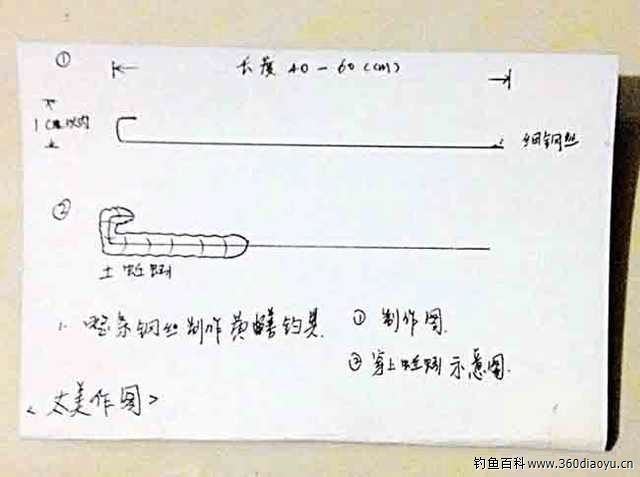 ① 长度 40-60(cm)
1cm以内
细钢丝
②
土蚯蚓
1. 整条钢丝制作黄鳝钓具 ① 制作图.
② 穿上蚯蚓示意图.
<太美作图>
钓鱼百科 www.360diaoyu.cn